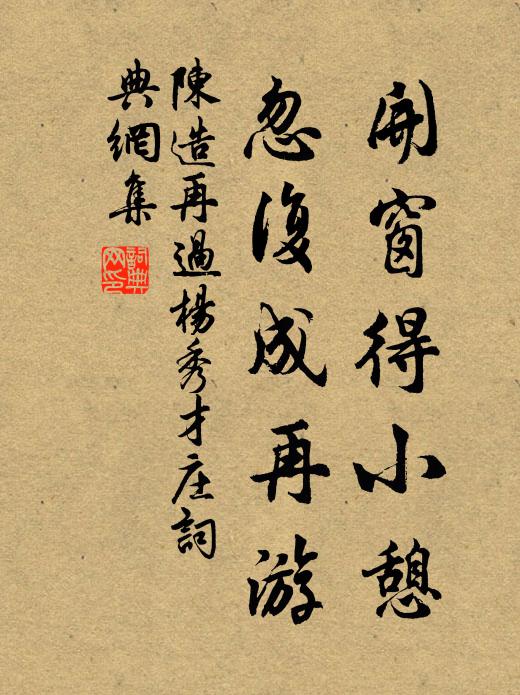 開窗得小憩
忽復成再游
陳造再過楊秀才庄詞
典網集
詞典
网印